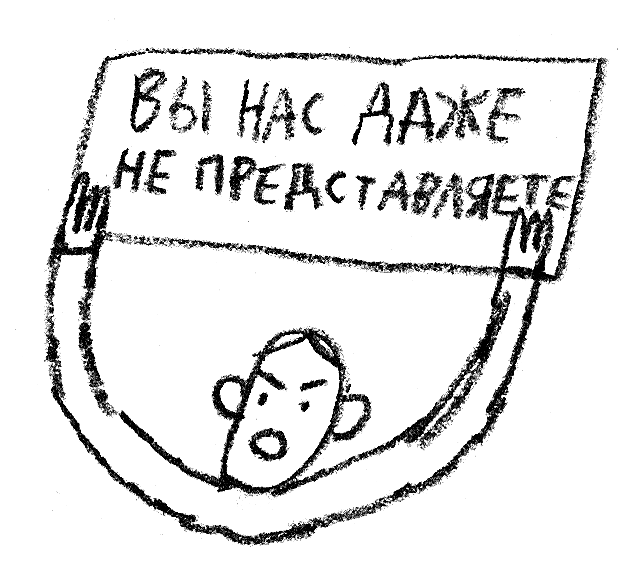 ВЫ НАС ДАЖЕ
НЕ ПРЕДСТАВЛЯЕТЕ